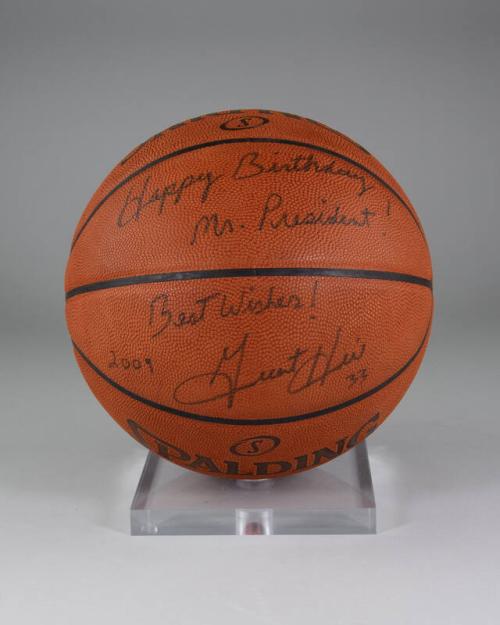 Happy Birthday
Mr. President!
Best Wishes!
2009
Grant Hill
33
SPALDING